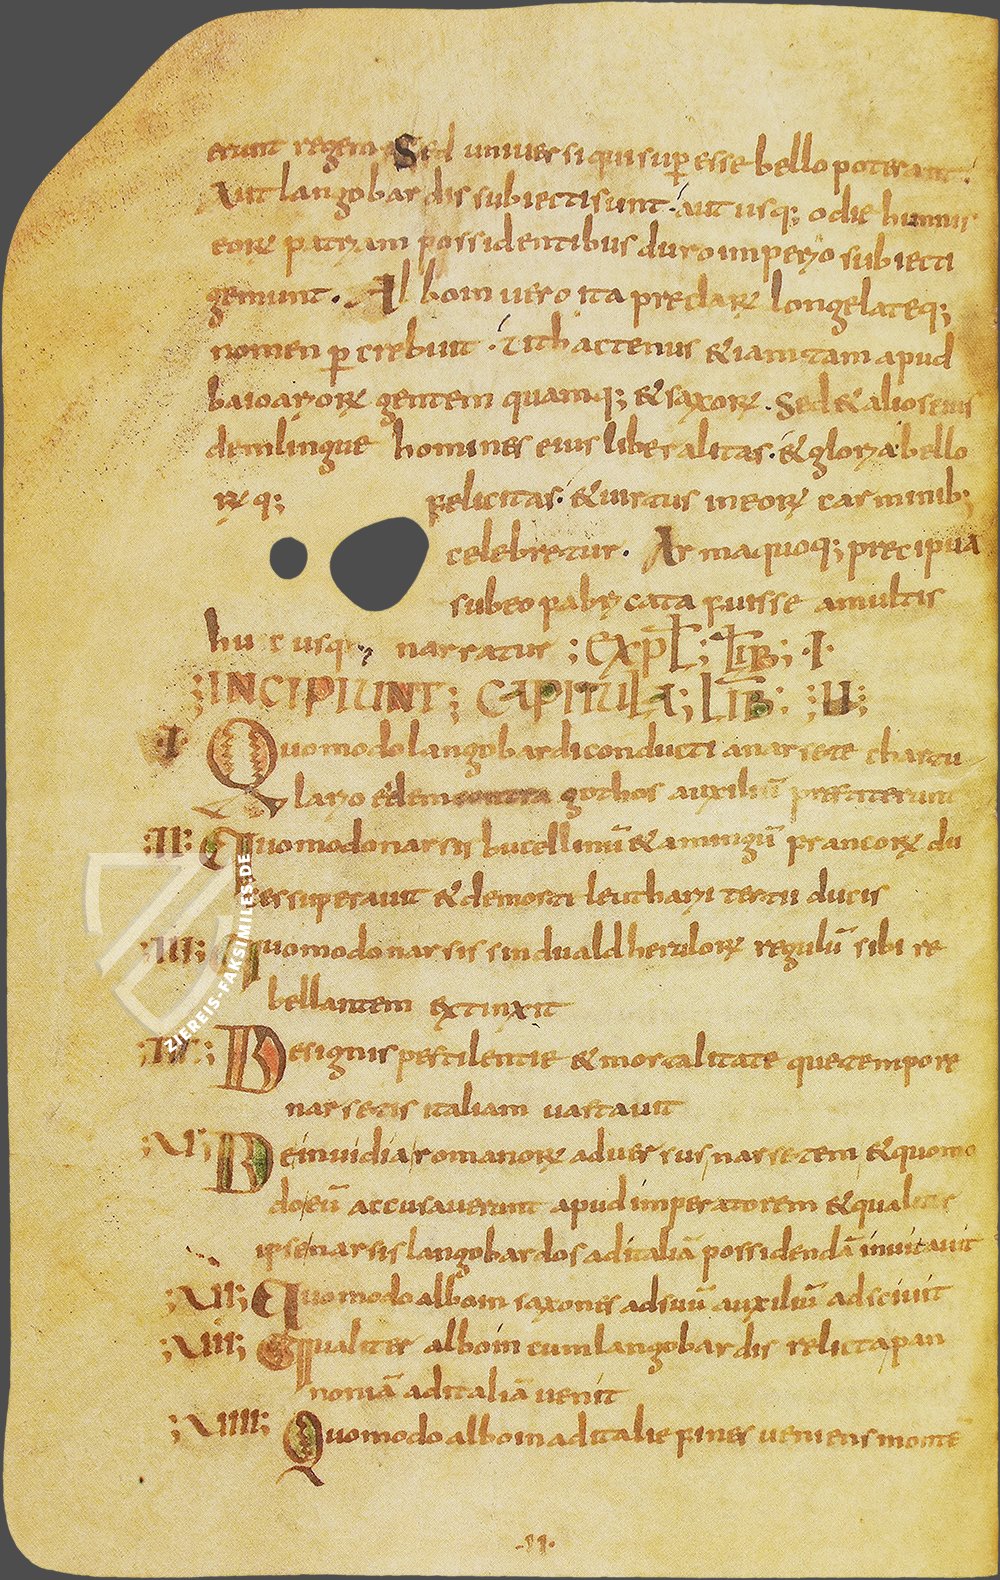 erunt regem Sed uniuersi qui sup̄ esse bello poterant.
Aut langobardis subiecti sunt. aut usq; odie hunnis
eoꝝ patriam possidentibus duro imperio subiecti
gemunt. Alboin uero ita preclaꝝ longe lateq;
nomen ꝑcrebuit. Ut hactenus & iam tam apud
baioarioꝝ gentem quamq; & saxoꝝ. Sed & alios eius
dem lingue homines eius liberalitas. & gloria bello
ꝝq; felicitas. & uirtus in eoꝝ carminib;
celebretur. Arma quoq; precipua
sub eo fabricata fuisse a multis
huc usq; narratur ; EXPL; LIB; ·I·
;INCIPIUNT; CAPITULA; LIB; ;II;
·I· Quomodo langobardi conducti a narsete chartu
lario eidem contra gothos auxiliū prestiterunt
;II; Quomodo narsis bucellinū & amingū francoꝝ du
ces superauit & de morti leutharii tertii ducis
;III; Quomodo narsis sinduald heruloꝝ regulū sibi re
bellantem extinxit
;IIII; De signis pestilentie & mortalitate que tempore
narsetis italiam uastauit
;V; De inuidia romanoꝝ aduersus narsetem & quomo
do eū accusauerunt apud imperatorem & qualiter
ipse narsis langobardos ad italiā possidendā inuitauit
;VII; Quomodo alboin saxones ad suū auxiliū adsciuit
;VIII; Qualiter alboin cum langobardis relicta pan
noniā ad italiā uenit
;VIIII; Quomodo alboin ad italie fines ueniens montē
·11·
ZIEREIS-FAKSIMILES.DE